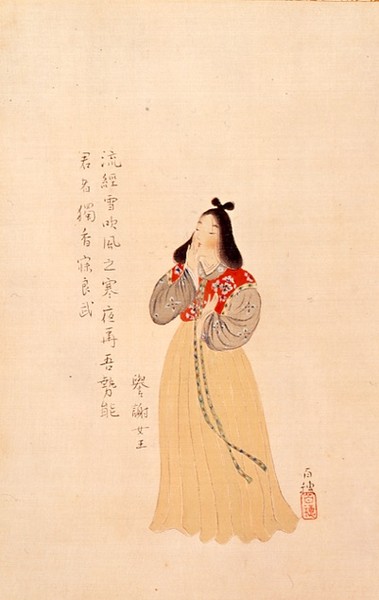 譽謝女王
流經雪吹風之寒夜尓吾勢能
君者獨香寐良武
百穂